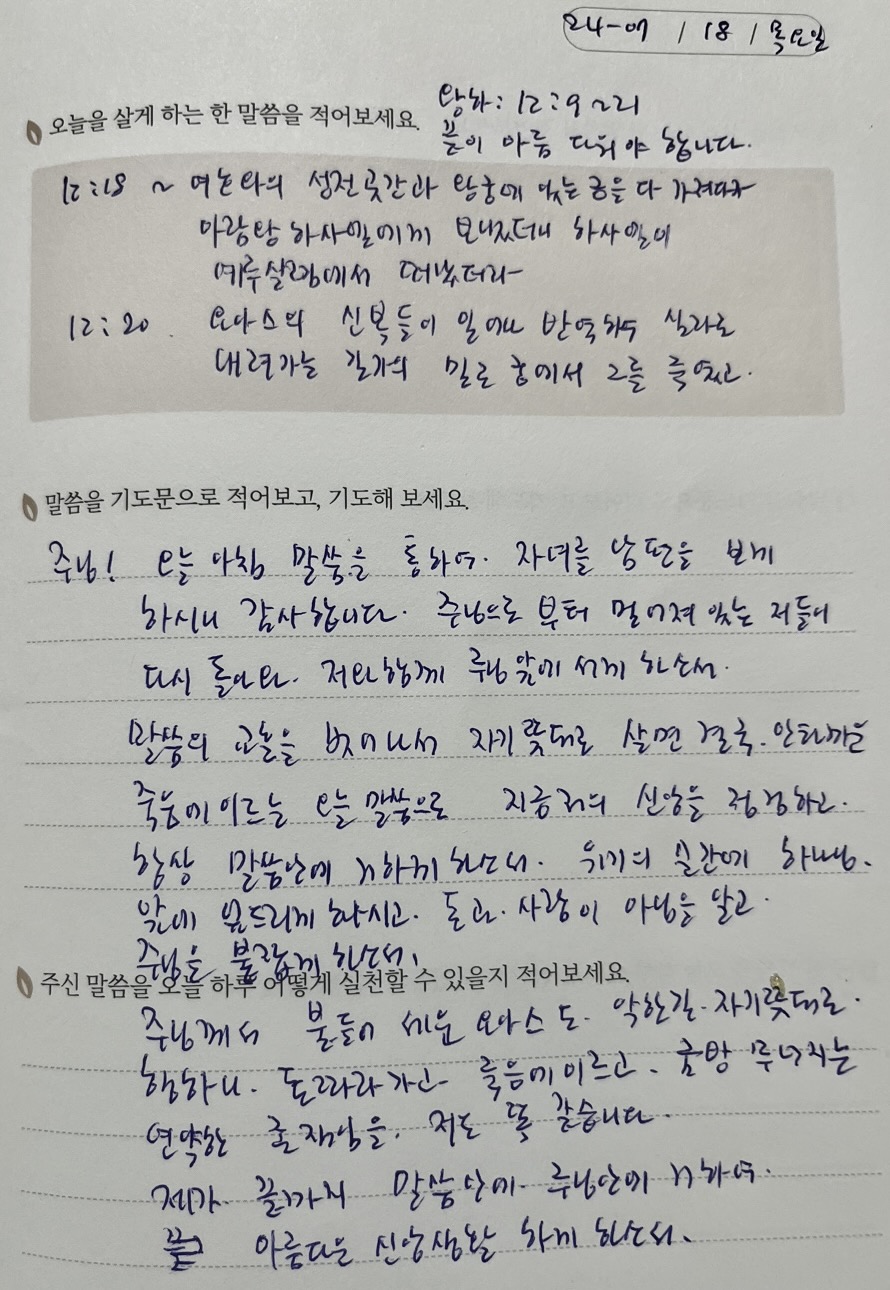 24-07 / 18 / 목요일
오늘을 살게 하는 한 말씀을 적어보세요.
왕하: 12:9~21
끝이 아름 다워야 합니다.
12:18 ~ 여호와의 성전곳간과 왕궁에 있는 금을 다 가져다가
아람왕 하사엘에게 보냈더니 하사엘이
예루살렘에서 떠났더라
12:20. 요아스의 신복들이 일어나 반역하여 실라로
내려가는 길가의 밀로 궁에서 그를 죽였고.
말씀을 기도문으로 적어보고, 기도해 보세요.
주님! 오늘 아침 말씀을 통하여. 자녀를 남편을 보게
하시니 감사합니다. 주님으로 부터 멀어져 있는 저들이
다시 돌아와. 저와함께 주님앞에 서게 하소서.
말씀의 교훈을 벗어나서 자기뜻대로 살면 결국. 안타까운
죽음에이르는 오늘말씀으로 지금저의 신앙을 점검하고.
항상 말씀안에 거하게하소서. 위기의 순간에 하나님.
앞에 엎드리게 하시고. 돈과. 사람이 아님을 알고.
주님을 붙잡게 하소서.
주신 말씀을 오늘 하루 어떻게 실천할 수 있을지 적어보세요.
주님께서 붙들어 세운 요아스도. 악한길. 자기뜻대로.
행하니. 도 따라가고 죽음에이르고. 금방 무너지는
연약한 존재임을. 저도 똑 같습니다.
제가. 끝까지 말씀안에. 주님안에 거하여.
끝 아름다운 신앙생활 하게 하소서.